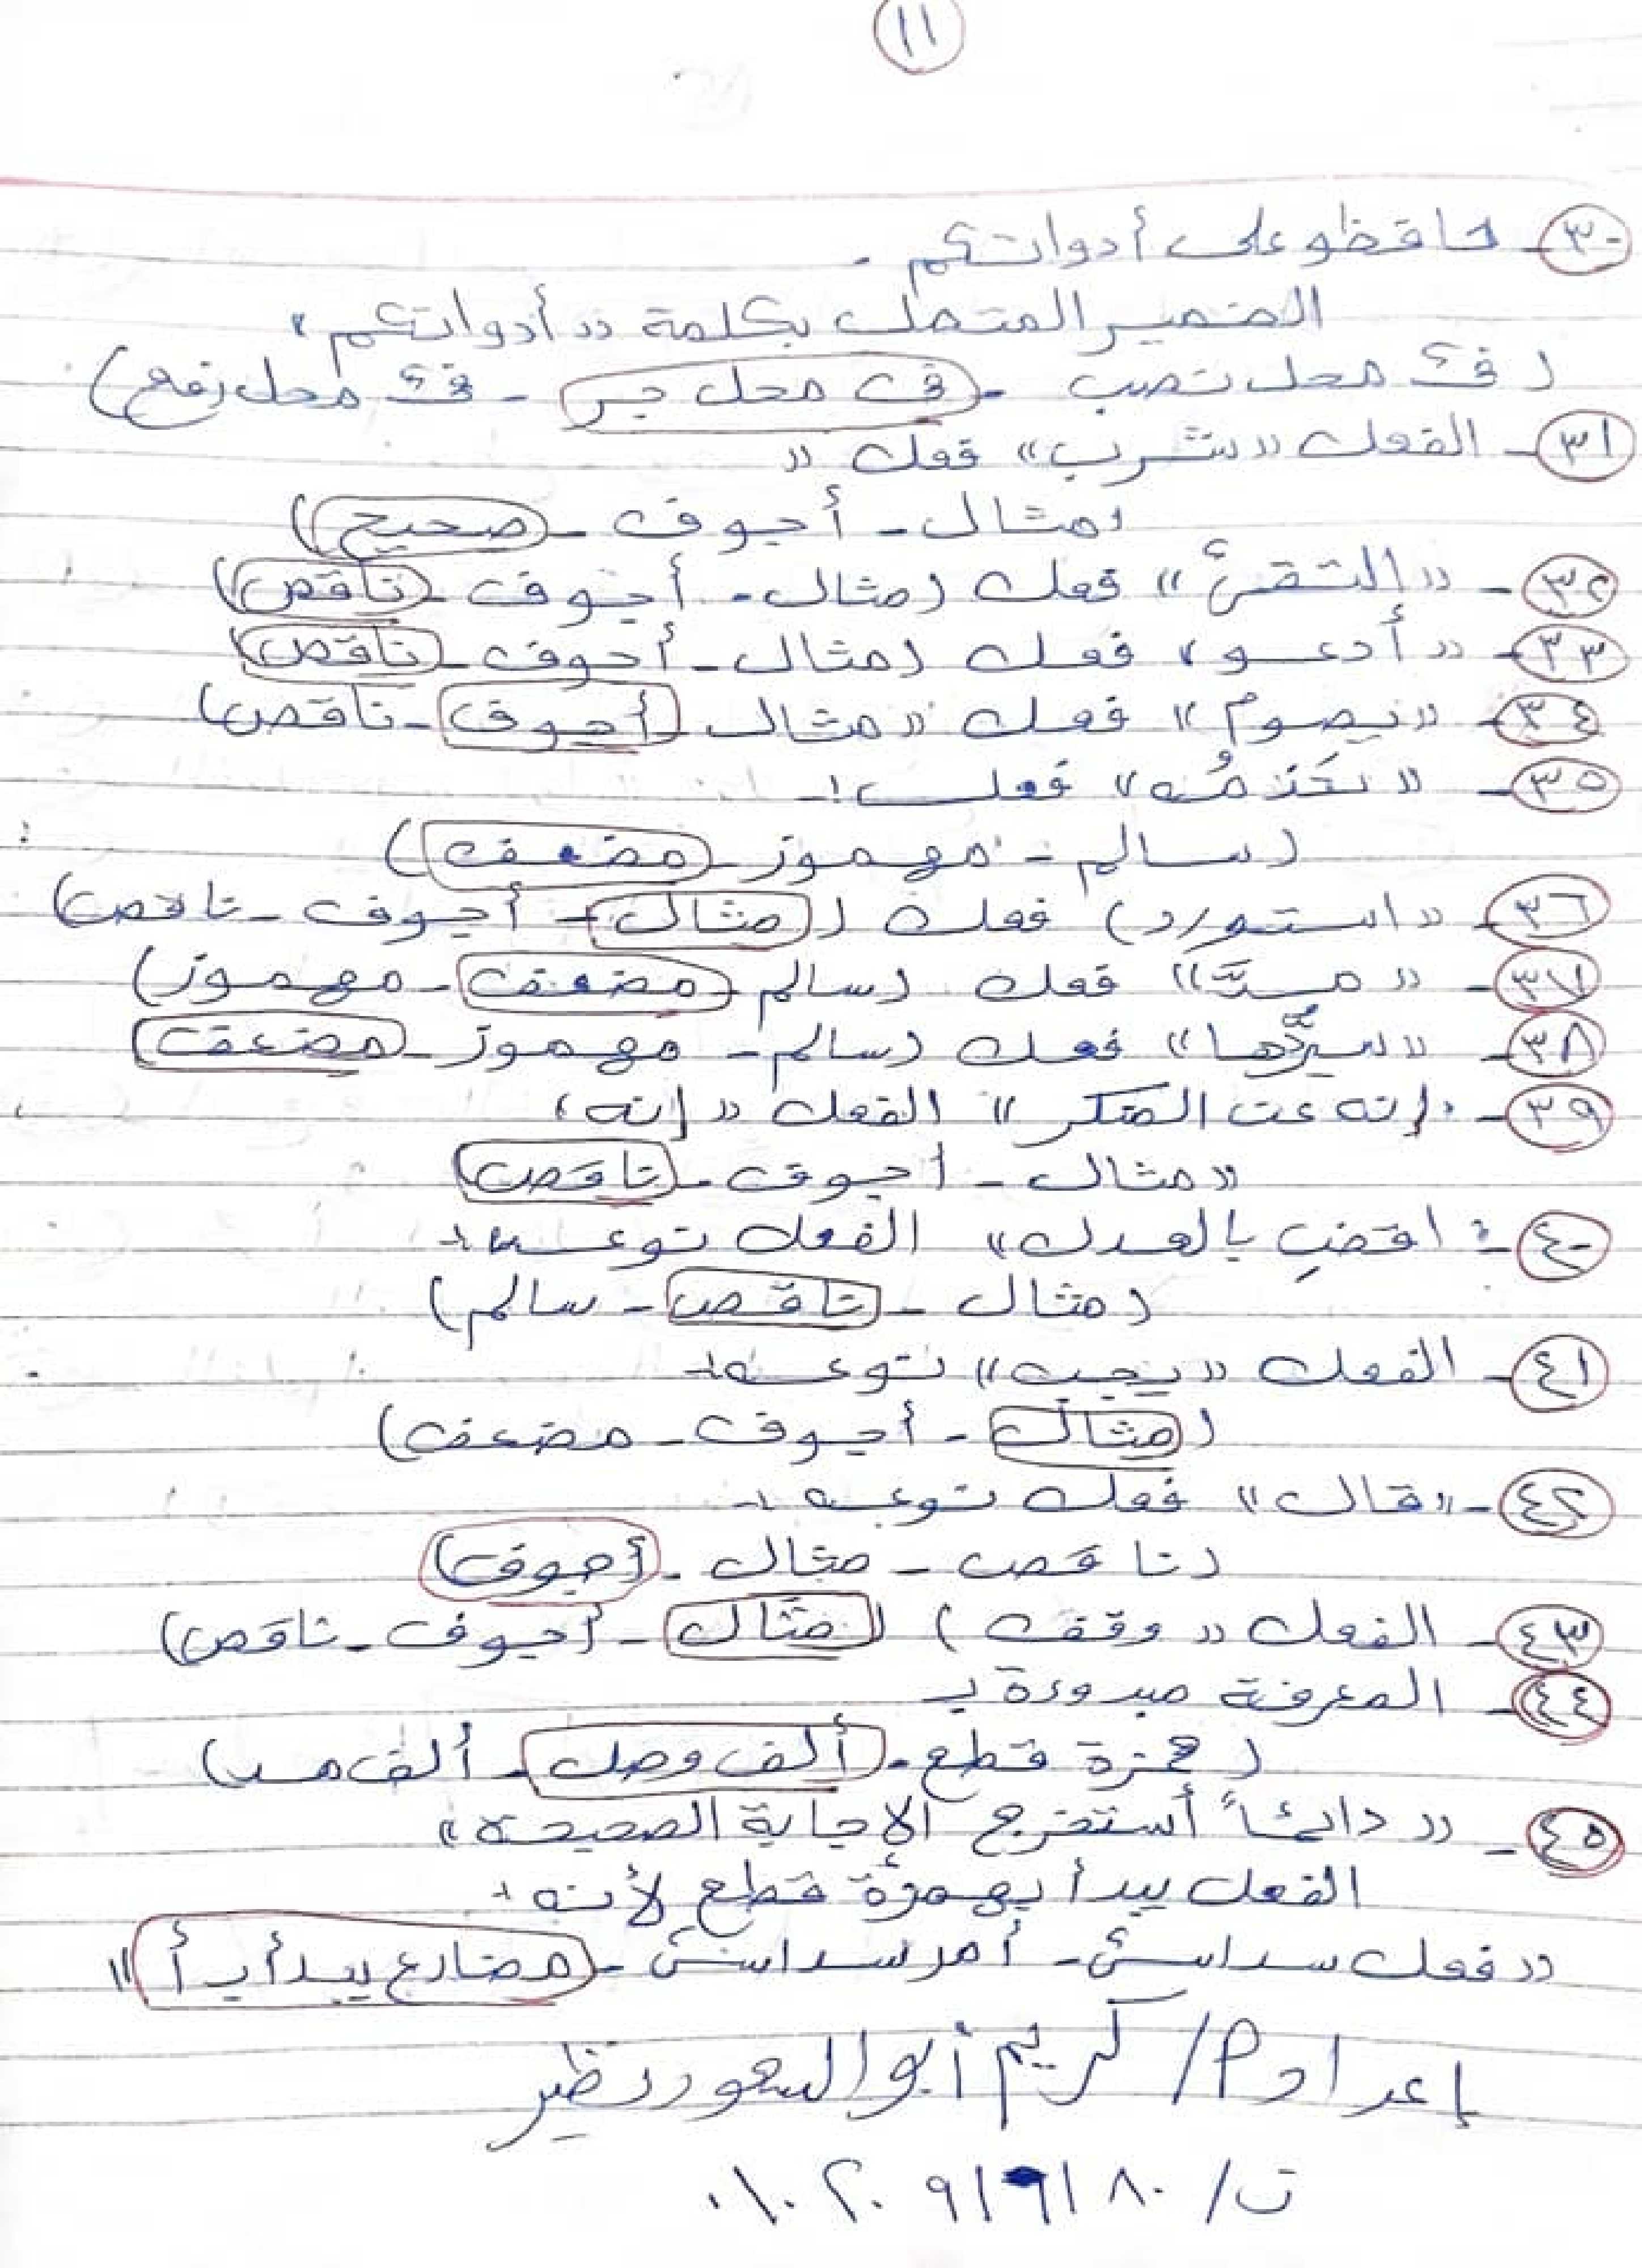 ١١
٣٠- حافظو على أدواتكم .
الضمير المتصل بكلمة «أدواتكم»
( فى محل نصب - فى محل جر - فى محل رفع )
٣١- الفعل «شرب» فعل «
( مثال - أجوف - صحيح )
٣٢- «التقىٰ» فعل ( مثال - أجوف - ناقص )
٣٣- «أدعو» فعل ( مثال - أجوف - ناقص )
٣٤- «يصوم» فعل «مثال - أجوف - ناقص )
٣٥- « » فعل :-
( سالم - مهموز - مضعف )
٣٦- «استورد) فعل ( مثال - أجوف - ناقص )
٣٧- «مدَّ» فعل ( سالم - مضعف - مهموز )
٣٨- « » فعل ( سالم - مهموز - مضعف )
٣٩- «إنه عن المنكر» الفعل «إنه»
«مثال - اجوف - ناقص )
٤٠- " اقضِ بالعدل» الفعل نوعه :-
( مثال - ناقص - سالم )
٤١- الفعل «يجب» نوعه :-
( مثال - أجوف - مضعف )
٤٢- «قال» فعل نوعه :-
( ناقص - مثال - أجوف )
٤٣- الفعل «وقف ) ( مثال - أجوف - ناقص )
٤٤- المعرفة مبدوءة بـ
( همزة قطع - ألف وصل - ألف مد )
٤٥- «دائماً أستخرج الإجابة الصحيحة»
الفعل يبدأ بهمزة قطع لأنه :
«فعل سداسى - أمر سداسى - مضارع يبدأ بـ أ »
إعداد م/ كريم أبو السعود نظير
ت/ ٠١٠٢٠٩١٩١٨٠